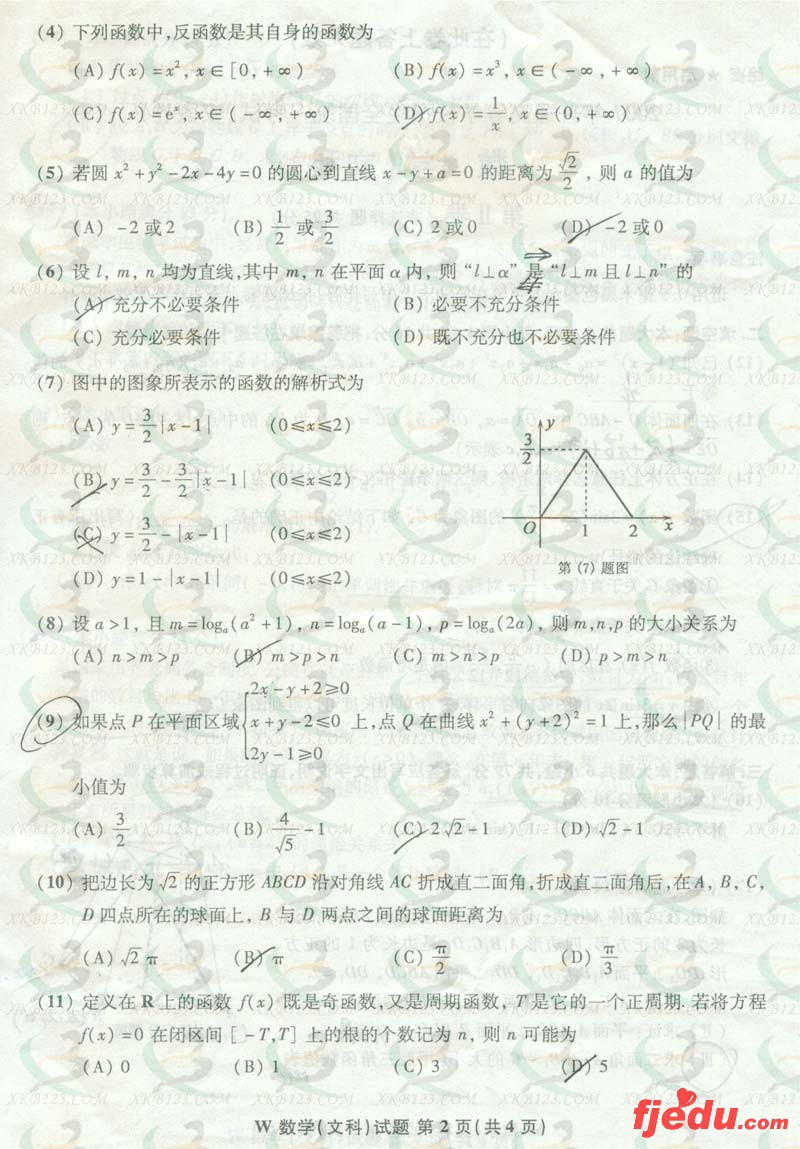 (4) 下列函数中,反函数是其自身的函数为
(A) f(x)=x², x∈[0,+∞) (B) f(x)=x³, x∈(-∞,+∞)
(C) f(x)=eˣ, x∈(-∞,+∞) (D) f(x)=1/x, x∈(0,+∞)
(5) 若圆 x²+y²-2x-4y=0 的圆心到直线 x-y+a=0 的距离为 √2/2, 则 a 的值为
(A) -2或2 (B) 1/2 或 3/2 (C) 2或0 (D) -2或0
(6) 设 l, m, n 均为直线,其中 m, n 在平面 α 内, 则 “l⊥α” 是 “l⊥m 且 l⊥n” 的
(A) 充分不必要条件 (B) 必要不充分条件
(C) 充分必要条件 (D) 既不充分也不必要条件
(7) 图中的图象所表示的函数的解析式为
(A) y=3/2|x-1| (0≤x≤2)
(B) y=3/2-3/2|x-1| (0≤x≤2)
(C) y=3/2-|x-1| (0≤x≤2)
(D) y=1-|x-1| (0≤x≤2)
y
3/2
O 1 2 x
第 (7) 题图
(8) 设 a>1, 且 m=logₐ(a²+1), n=logₐ(a-1), p=logₐ(2a), 则 m,n,p 的大小关系为
(A) n>m>p (B) m>p>n (C) m>n>p (D) p>m>n
2x-y+2≥0
(9) 如果点 P 在平面区域 x+y-2≤0 上,点 Q 在曲线 x²+(y+2)²=1 上,那么 |PQ| 的最
2y-1≥0
小值为
(A) 3/2 (B) 4/√5-1 (C) 2√2-1 (D) √2-1
(10) 把边长为 √2 的正方形 ABCD 沿对角线 AC 折成直二面角,折成直二面角后,在 A, B, C,
D 四点所在的球面上, B 与 D 两点之间的球面距离为
(A) √2π (B) π (C) π/2 (D) π/3
(11) 定义在 R 上的函数 f(x) 既是奇函数,又是周期函数, T 是它的一个正周期. 若将方程
f(x)=0 在闭区间 [-T,T] 上的根的个数记为 n, 则 n 可能为
(A) 0 (B) 1 (C) 3 (D) 5
W 数学(文科)试题 第 2 页(共 4 页)
fjedu.com
XKB123.COM